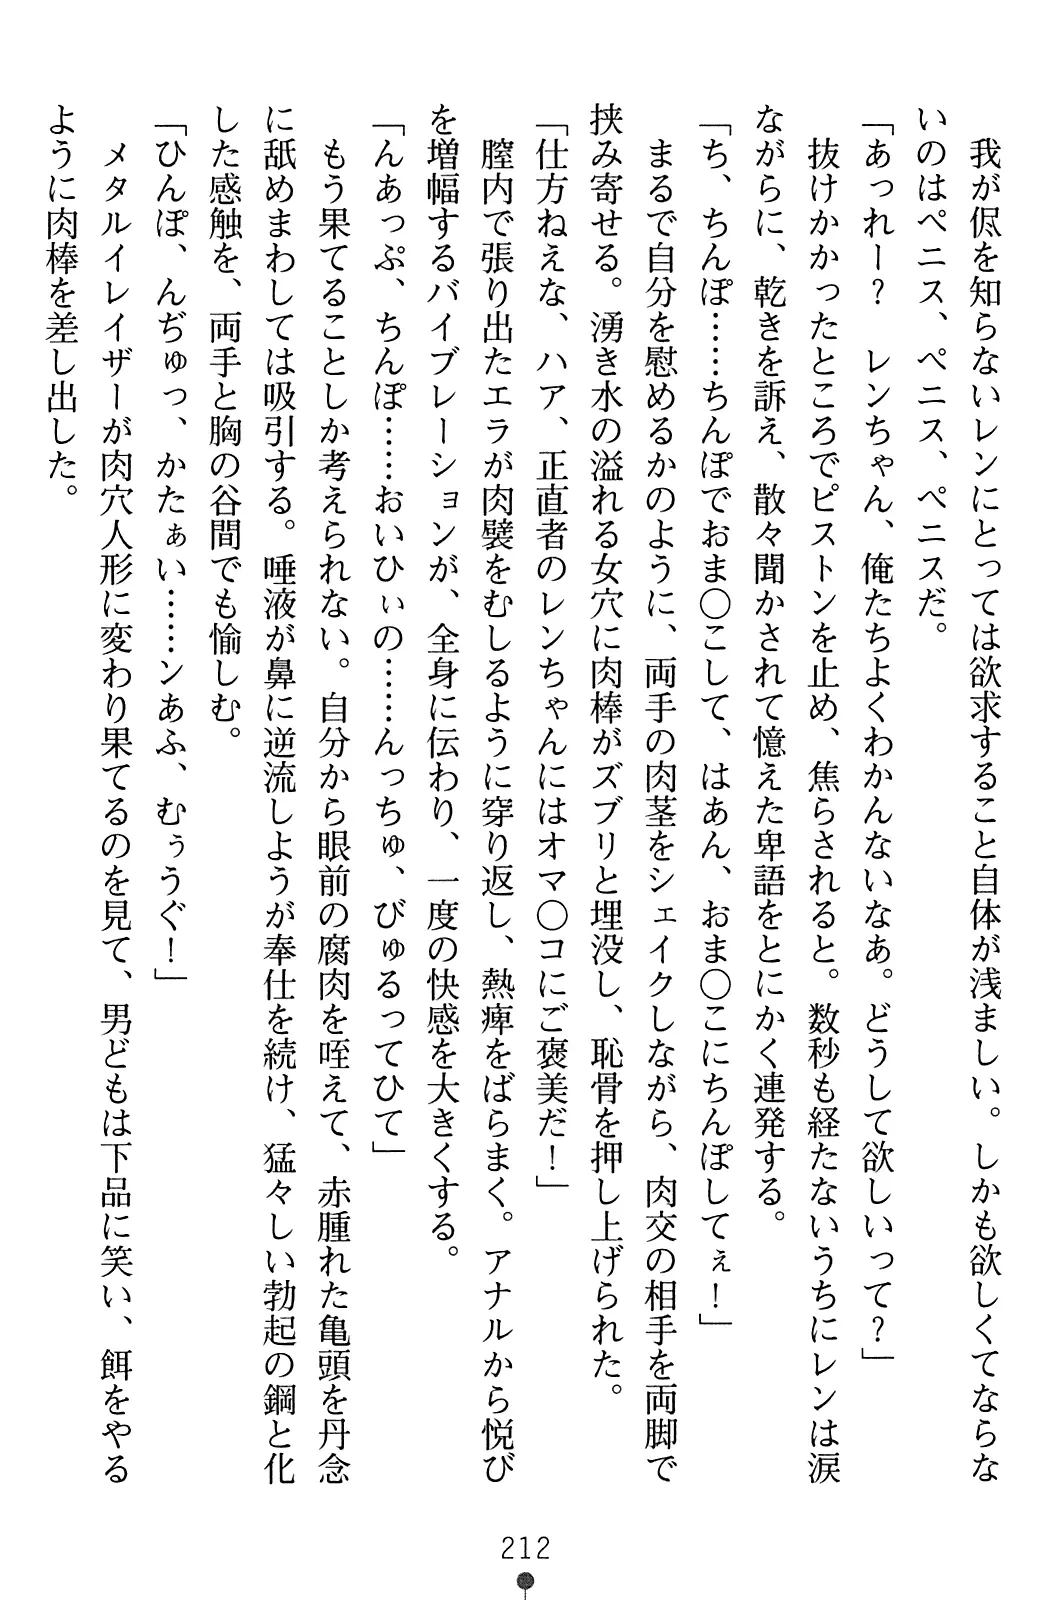 我が侭を知らないレンにとっては欲求すること自体が浅ましい。しかも欲しくてならな
いのはペニス、ペニス、ペニスだ。
「あっれー？　レンちゃん、俺たちよくわかんないなあ。どうして欲しいって？」
抜けかかったところでピストンを止め、焦らされると。数秒も経たないうちにレンは涙
ながらに、乾きを訴え、散々聞かされて憶えた卑語をとにかく連発する。
「ち、ちんぽ……ちんぽでおま〇こして、はあん、おま〇こにちんぽしてぇ！」
まるで自分を慰めるかのように、両手の肉茎をシェイクしながら、肉交の相手を両脚で
挟み寄せる。湧き水の溢れる女穴に肉棒がズブリと埋没し、恥骨を押し上げられた。
「仕方ねえな、ハア、正直者のレンちゃんにはオマ〇コにご褒美だ！」
膣内で張り出たエラが肉襞をむしるように穿り返し、熱痺をばらまく。アナルから悦び
を増幅するバイブレーションが、全身に伝わり、一度の快感を大きくする。
「んあっぷ、ちんぽ……おいひぃの……んっちゅ、びゅるってひて」
もう果てることしか考えられない。自分から眼前の腐肉を咥えて、赤腫れた亀頭を丹念
に舐めまわしては吸引する。唾液が鼻に逆流しようが奉仕を続け、猛々しい勃起の鋼と化
した感触を、両手と胸の谷間でも愉しむ。
「ひんぽ、んぢゅっ、かたぁい……ンあふ、むぅうぐ！」
メタルイレイザーが肉穴人形に変わり果てるのを見て、男どもは下品に笑い、餌をやる
ように肉棒を差し出した。
212